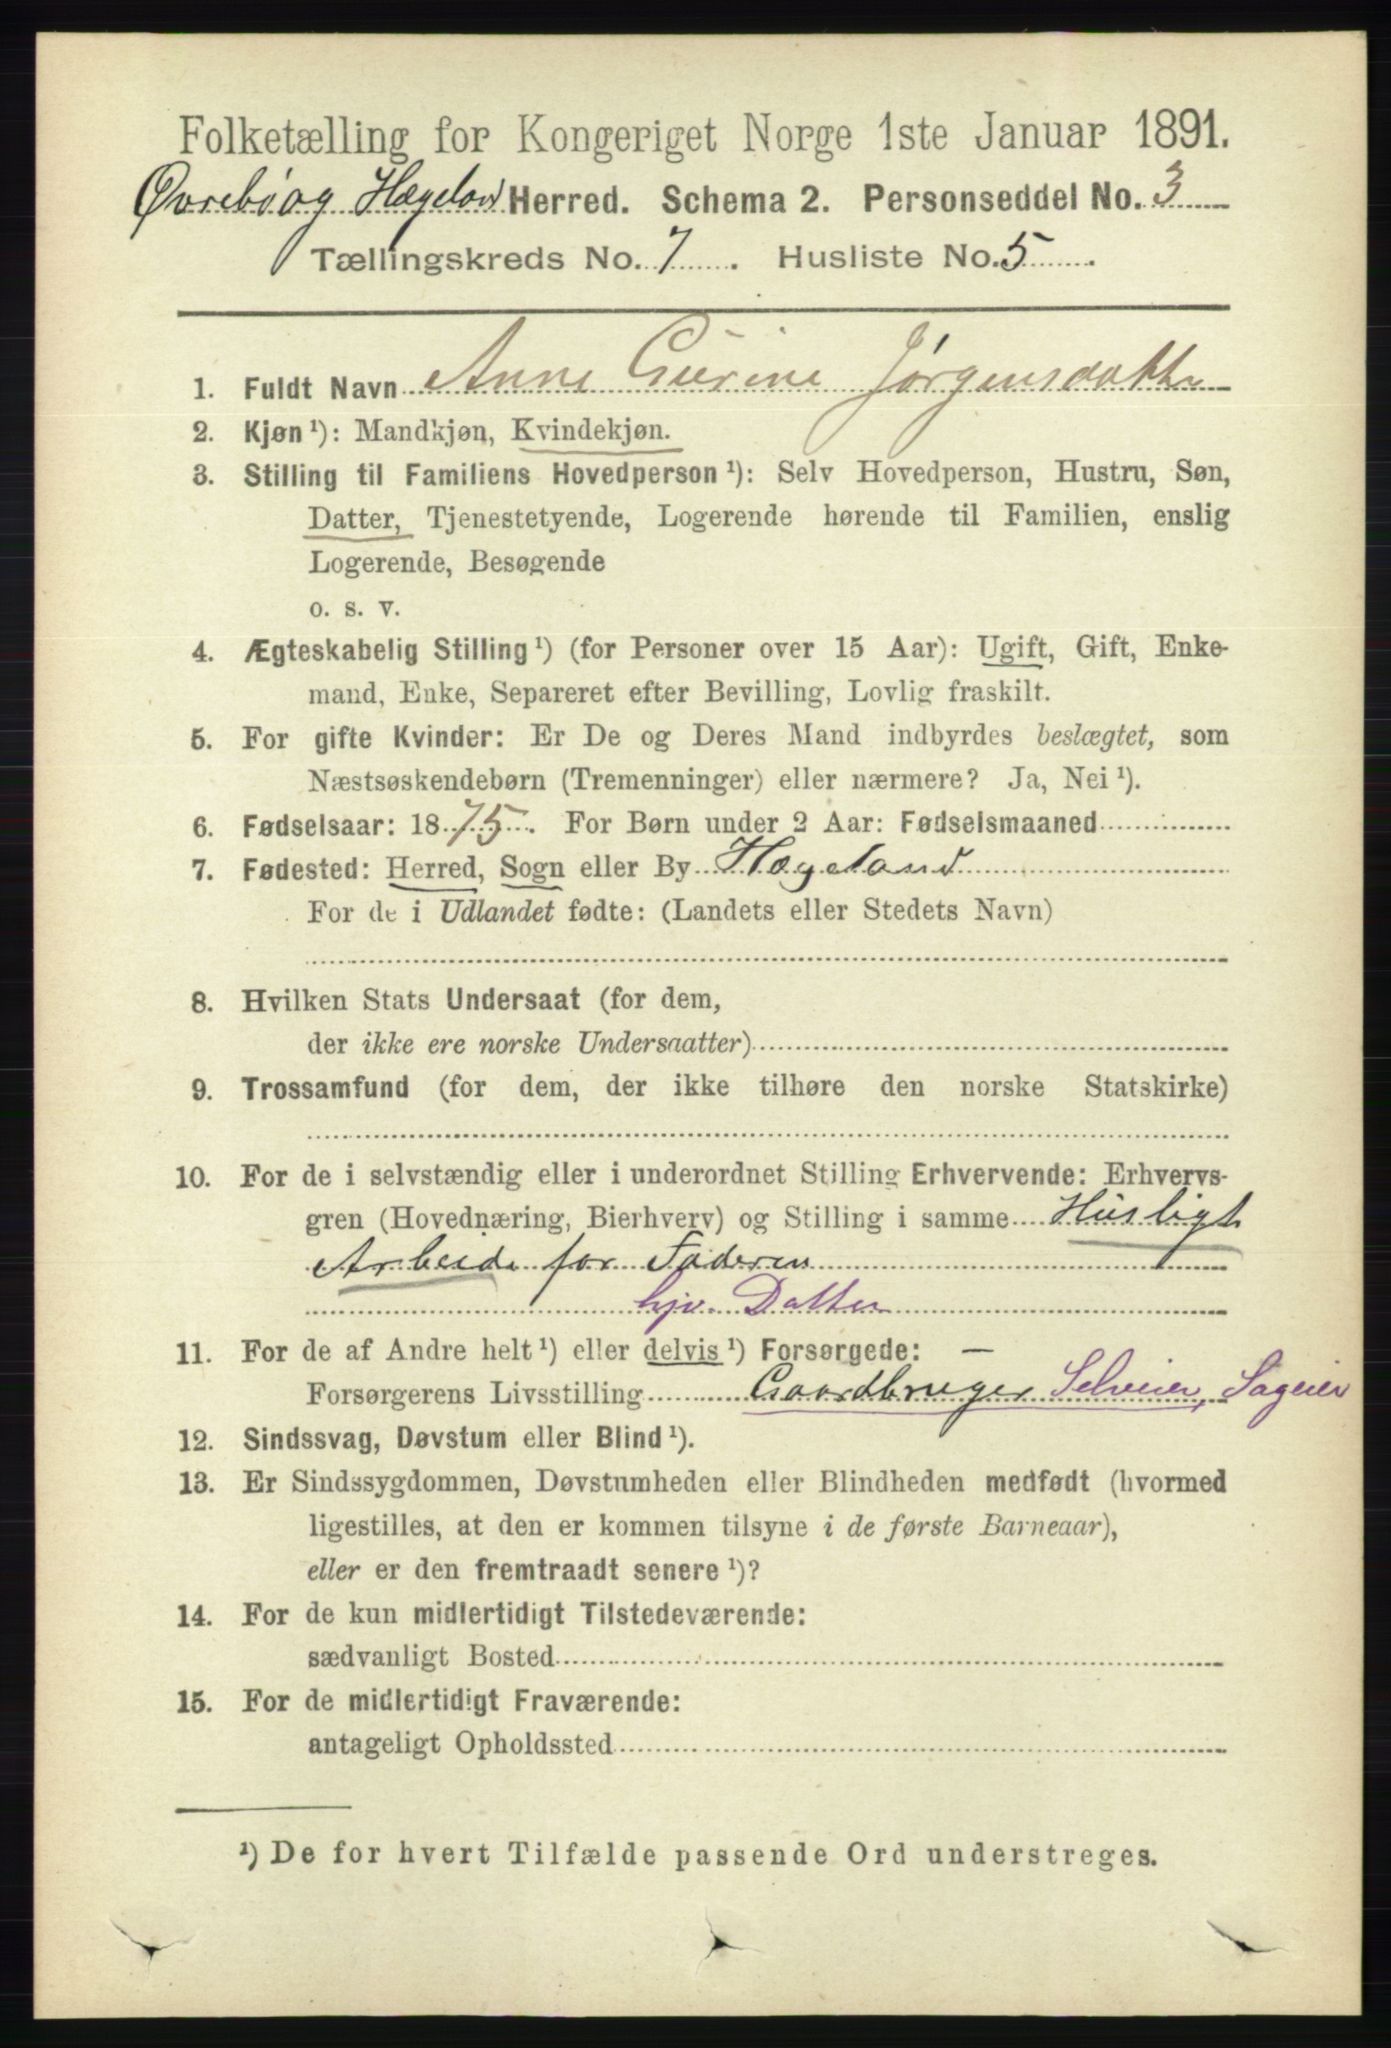 Folketælling for Kongeriget Norge 1ste Januar 1891.
Øvrebø og Hægeland Herred. Schema 2. Personseddel No. 3
Tællingskreds No. 7. Husliste No. 5.
1. Fuldt Navn Anne Gurine Jørgensdatter
2. Kjøn ¹): Mandkjøn, Kvindekjøn.
3. Stilling til Familiens Hovedperson ¹): Selv Hovedperson, Hustru, Søn,
Datter, Tjenestetyende, Logerende hørende til Familien, enslig
Logerende, Besøgende
o. s. v.
4. Ægteskabelig Stilling ¹) (for Personer over 15 Aar): Ugift, Gift, Enke-
mand, Enke, Separeret efter Bevilling, Lovlig fraskilt.
5. For gifte Kvinder: Er De og Deres Mand indbyrdes beslægtet, som
Næstsøskendebørn (Tremenninger) eller nærmere? Ja, Nei ¹).
6. Fødselsaar: 1875. For Børn under 2 Aar: Fødselsmaaned
7. Fødested: Herred, Sogn eller By Hægeland
For de i Udlandet fødte: (Landets eller Stedets Navn)
8. Hvilken Stats Undersaat (for dem,
der ikke ere norske Undersaatter)
9. Trossamfund (for dem, der ikke tilhøre den norske Statskirke)
10. For de i selvstændig eller i underordnet Stilling Erhvervende: Erhvervs-
gren (Hovednæring, Bierhverv) og Stilling i samme Husligt
Arbeide for Faderen
hjv. Datter
11. For de af Andre helt ¹) eller delvis ¹) Forsørgede: —
Forsørgerens Livsstilling Gaardbruger Selveier, Sageier
12. Sindssvag, Døvstum eller Blind ¹).
13. Er Sindssygdommen, Døvstumheden eller Blindheden medfødt (hvormed
ligestilles, at den er kommen tilsyne i de første Barneaar),
eller er den fremtraadt senere ¹)?
14. For de kun midlertidigt Tilstedeværende:
sædvanligt Bosted
15. For de midlertidigt Fraværende:
antageligt Opholdssted
¹) De for hvert Tilfælde passende Ord understreges.